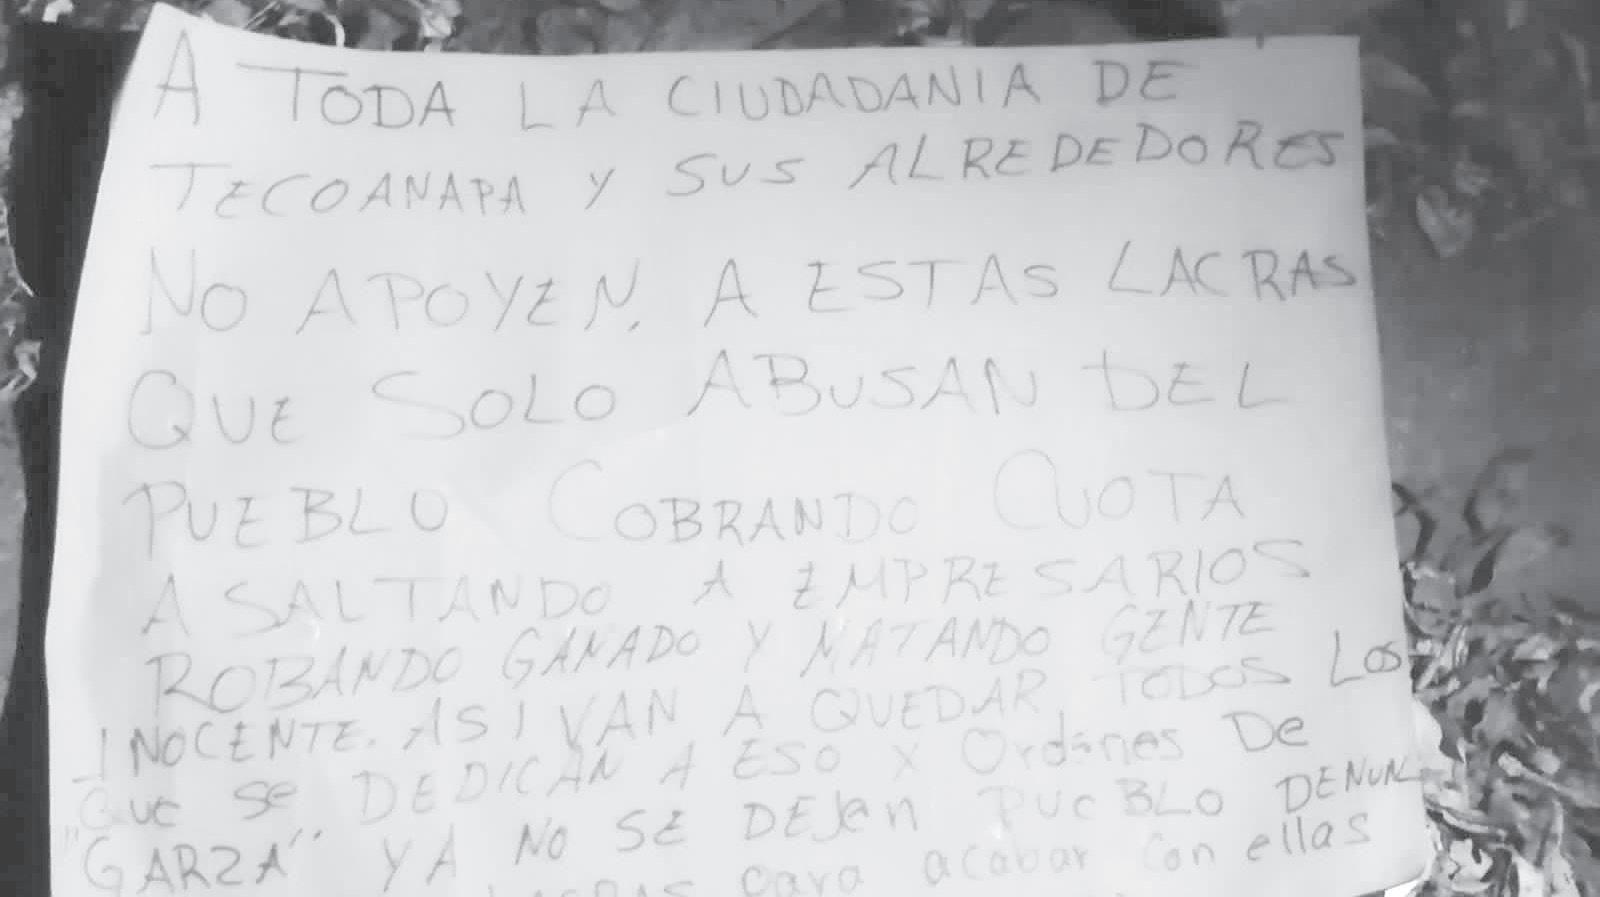 A TODA LA CIUDADANIA DE
TECOANAPA Y SUS ALREDEDORES
NO APOYEN. A ESTAS LACRAS
QUE SOLO ABUSAN DEL
PUEBLO COBRANDO CUOTA
ASALTANDO A EMPRESARIOS
ROBANDO GANADO Y MATANDO GENTE
INOCENTE. ASI VAN A QUEDAR TODOS LOS
QUE Se DEDICAN A ESO X Ordenes De
"GARZA" YA NO SE DEJen PUeBLO DENUN
LACRAS para acabar Con ellas